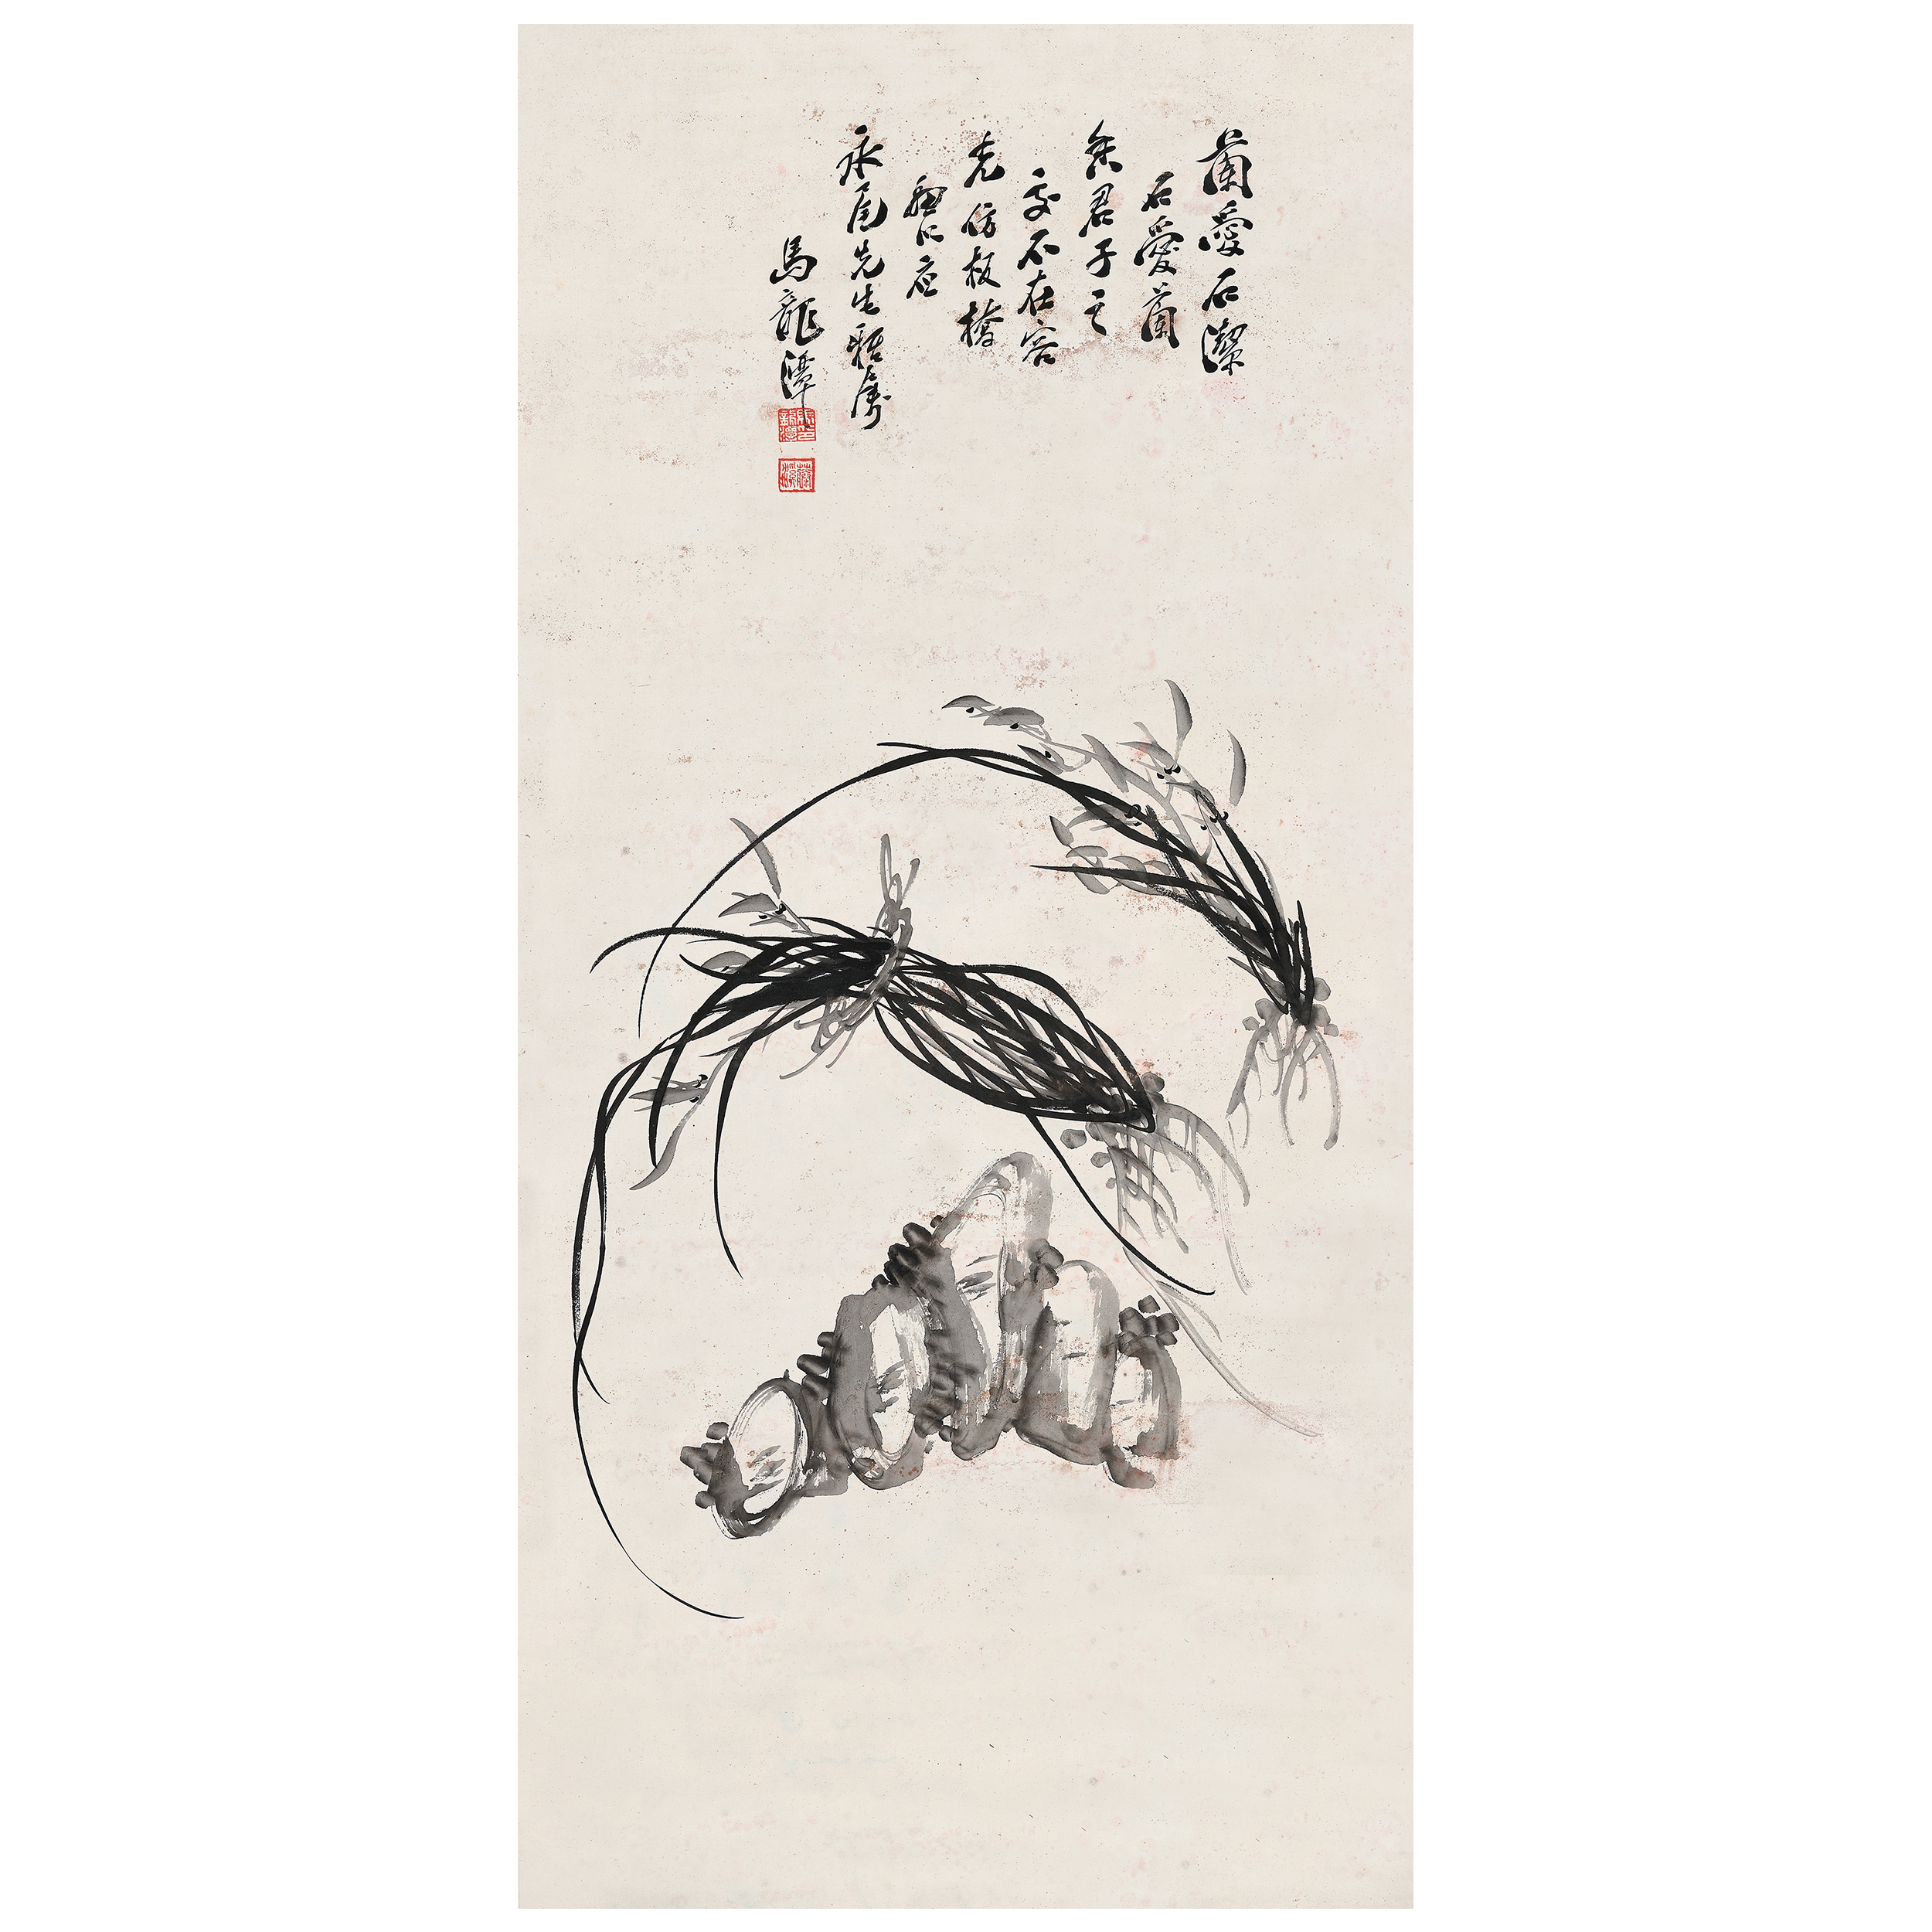 蘭愛石潔
石愛蘭
香君子之
交不在容
老仿板橋
翻仁应
永尾先生雅屬
馬龍潭